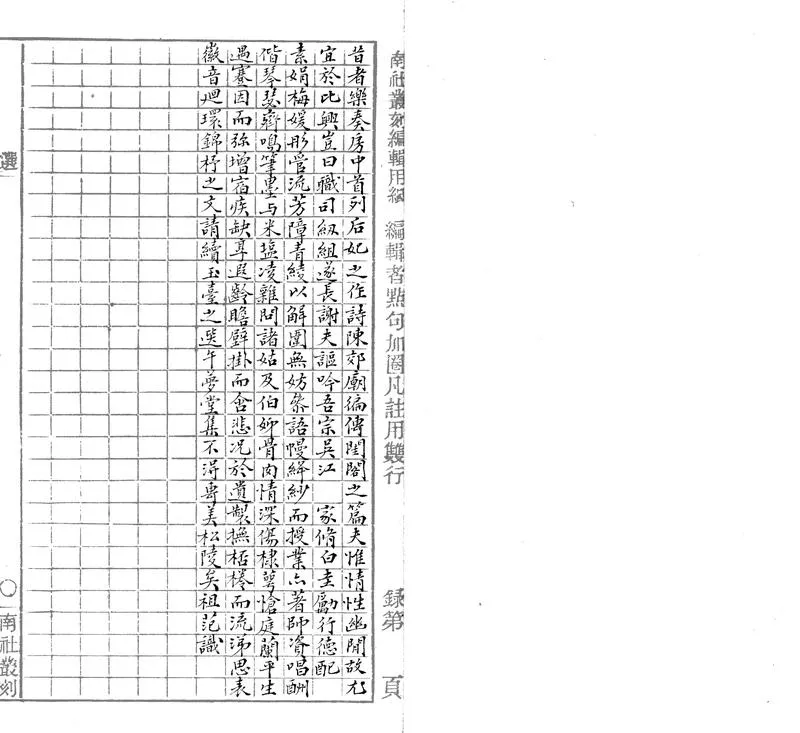 南社叢刻編輯用紙 編輯者點句加圈凡註用雙行 錄第 頁
昔者樂奏房中首列后妃之作詩陳郊廟徧傳閨閤之篇夫惟情性幽閒故尤
宜於比興豈曰職司紃組遂長謝夫謳吟吾宗吳江 家脩白圭勵行德配
素娟梅媛彤管流芳障青綾以解圍無妨叅語幔絳紗而授業亦著師資唱酬
偕琴瑟齊鳴筆墨与米塩凌雜問諸姑及伯姉骨肉情深傷棣萼愴庭蘭平生
遇蹇因而弥增宿疾缺享遐齡瞻壁掛而含悲况於遺製撫桮棬而流涕思表
徽音廻環錦杼之文請續玉臺之選午夢堂集不得專美松陵矣祖范識
選 〇 南社叢刻